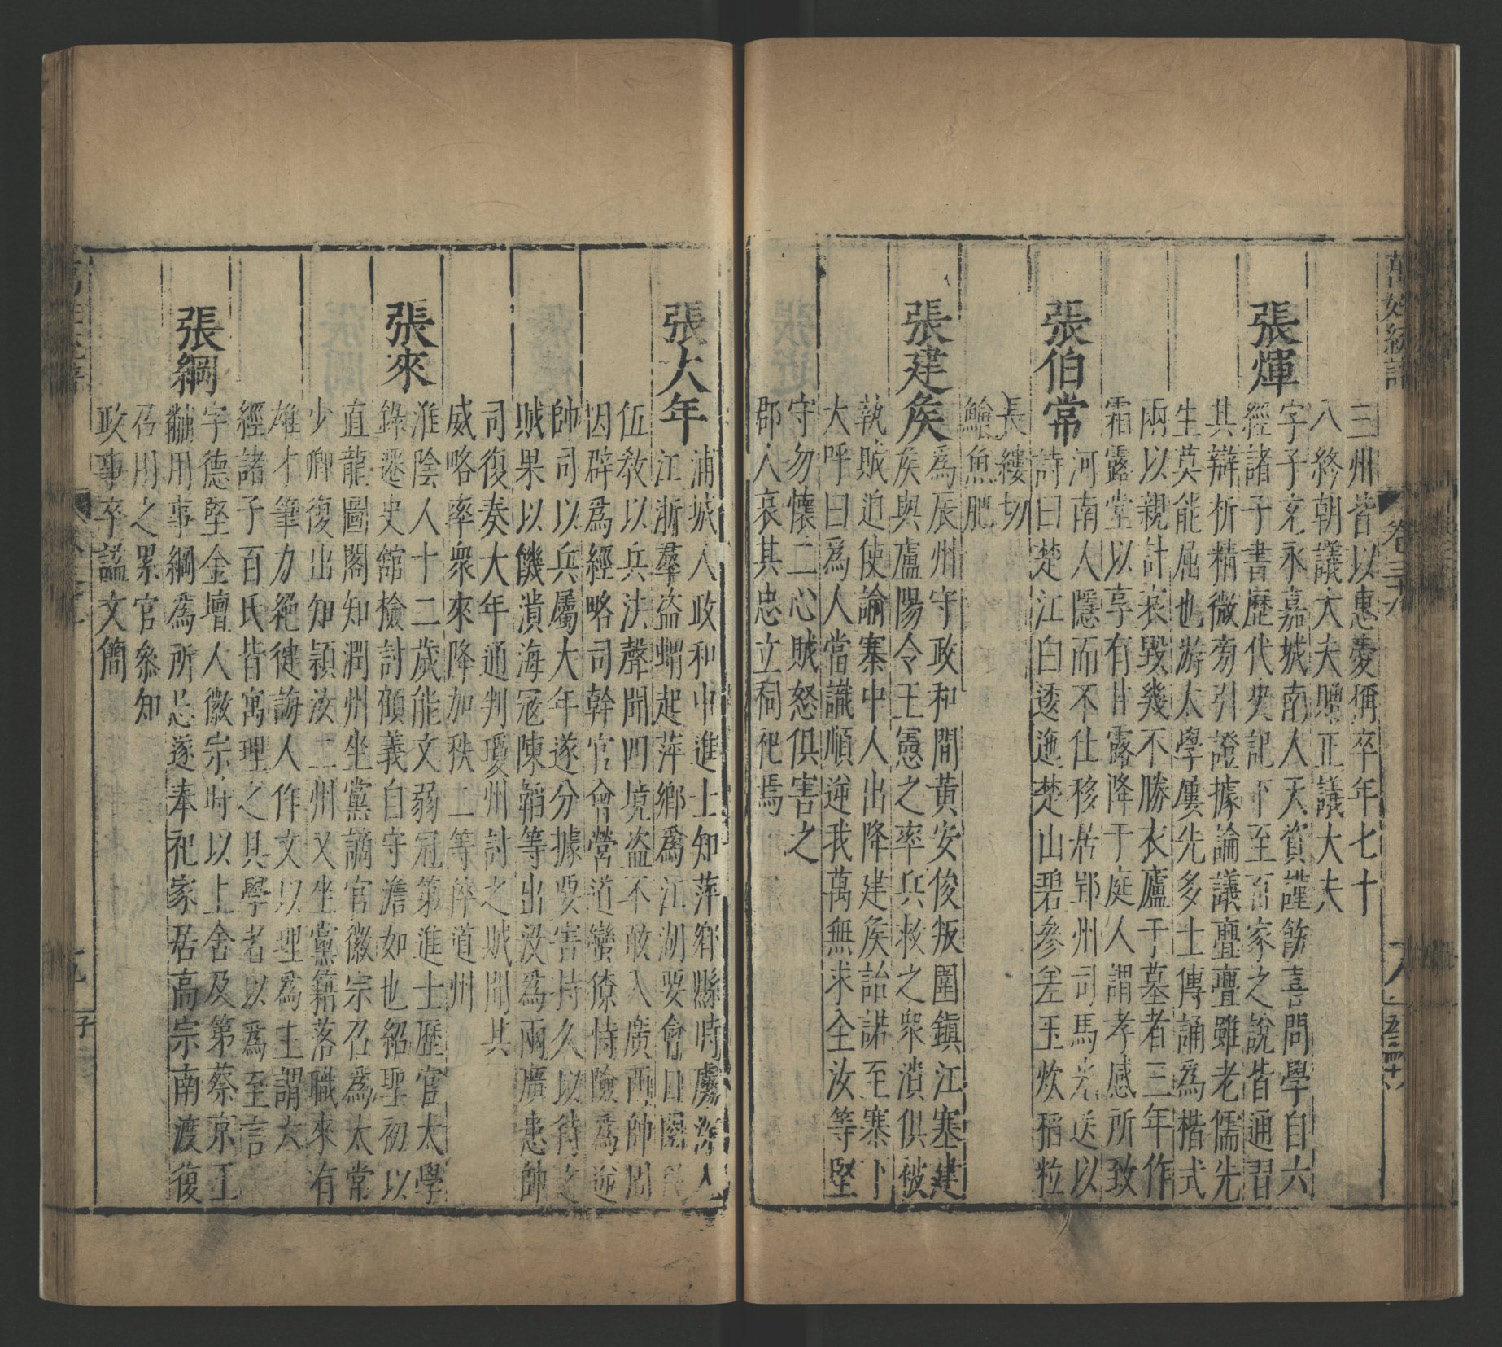 萬姓統譜
卷三十九
三州皆以惠愛稱卒年七十
八終朝議大夫贈正議大夫
張煇
字子充永嘉城南人天資謹飭喜問學自六
經諸子書歷代史記下至百家之說皆通習
其辯析精微旁引證據論議亹亹雖老儒先
生莫能屈也游太學屢先多士傳誦為楷式
兩以親計哀毀幾不勝衣廬于墓者三年作
霜露堂以享有甘露降于庭人謂孝感所致
張伯常
河南人隱而不仕移居郢州司馬光送以
詩曰楚江白逶迤楚山碧參差玉炊稻粒
長縷切
鱠魚肥
張建矦
為辰州守政和間黃安俊叛圍鎮江寨建
矦與廬陽令王㥶之率兵救之眾潰俱被
執賊迫使諭寨中人出降建矦詒諾至寨下
大呼曰為人當識順逆我萬無求全汝等堅
守勿懷二心賊怒俱害之
郡人哀其忠立祠祀焉
張大年
浦城人政和中進士知萍鄉縣時虜深入
江浙羣盜蝟起萍鄉為江湖要會日團
伍教以兵法聲聞四境盜不敢入廣西帥
因辟為經略司幹官會營道蠻獠恃險為逆
帥司以兵屬大年遂分據要害持久以待之
賊果以饑潰海冦陳韜等出沒為兩廣患帥
司復奏大年通判瓊州討之賊聞其
威略率眾來降加秩二等倅道州
張來
淮陰人十二歲能文弱冠第進士歷官太學
錄遷史館檢討顧義自守澹如也紹聖初以
直龍圖閣知潤州坐黨謫官徽宗召為太常
少卿復出知穎汝二州又坐黨籍落職來有
雄才筆力絕徤誨人作文以理為主謂六
經諸子百氏皆寓理之具學者以為至言
張綱
字德堅金壇人徽宗時以上舍及第蔡京王
黼用事綱為所忌遂奉祀家居高宗南渡復
召用之累官參知
政事卒謚文簡